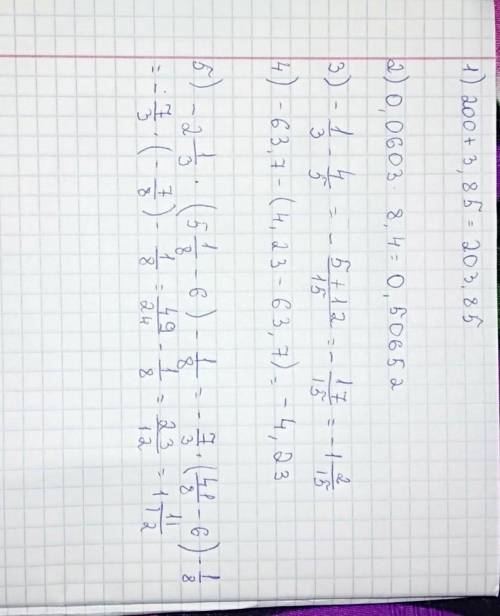 1) 200 + 3,85 = 203,85
2) 0,0603 · 8,4 = 0,50652
3) - 1/3 - 4/5 = - (5+12)/15 = - 17/15 = -1 2/15
4) - 63,7 - (4,23 - 63,7) = - 4,23
5) - 2 1/3 · (5 1/8 - 6) - 1/8 = - 7/3 · (41/8 - 6) - 1/8
= - 7/3 · (- 7/8) - 1/8 = 49/24 - 1/8 = 23/12 = 1 11/12